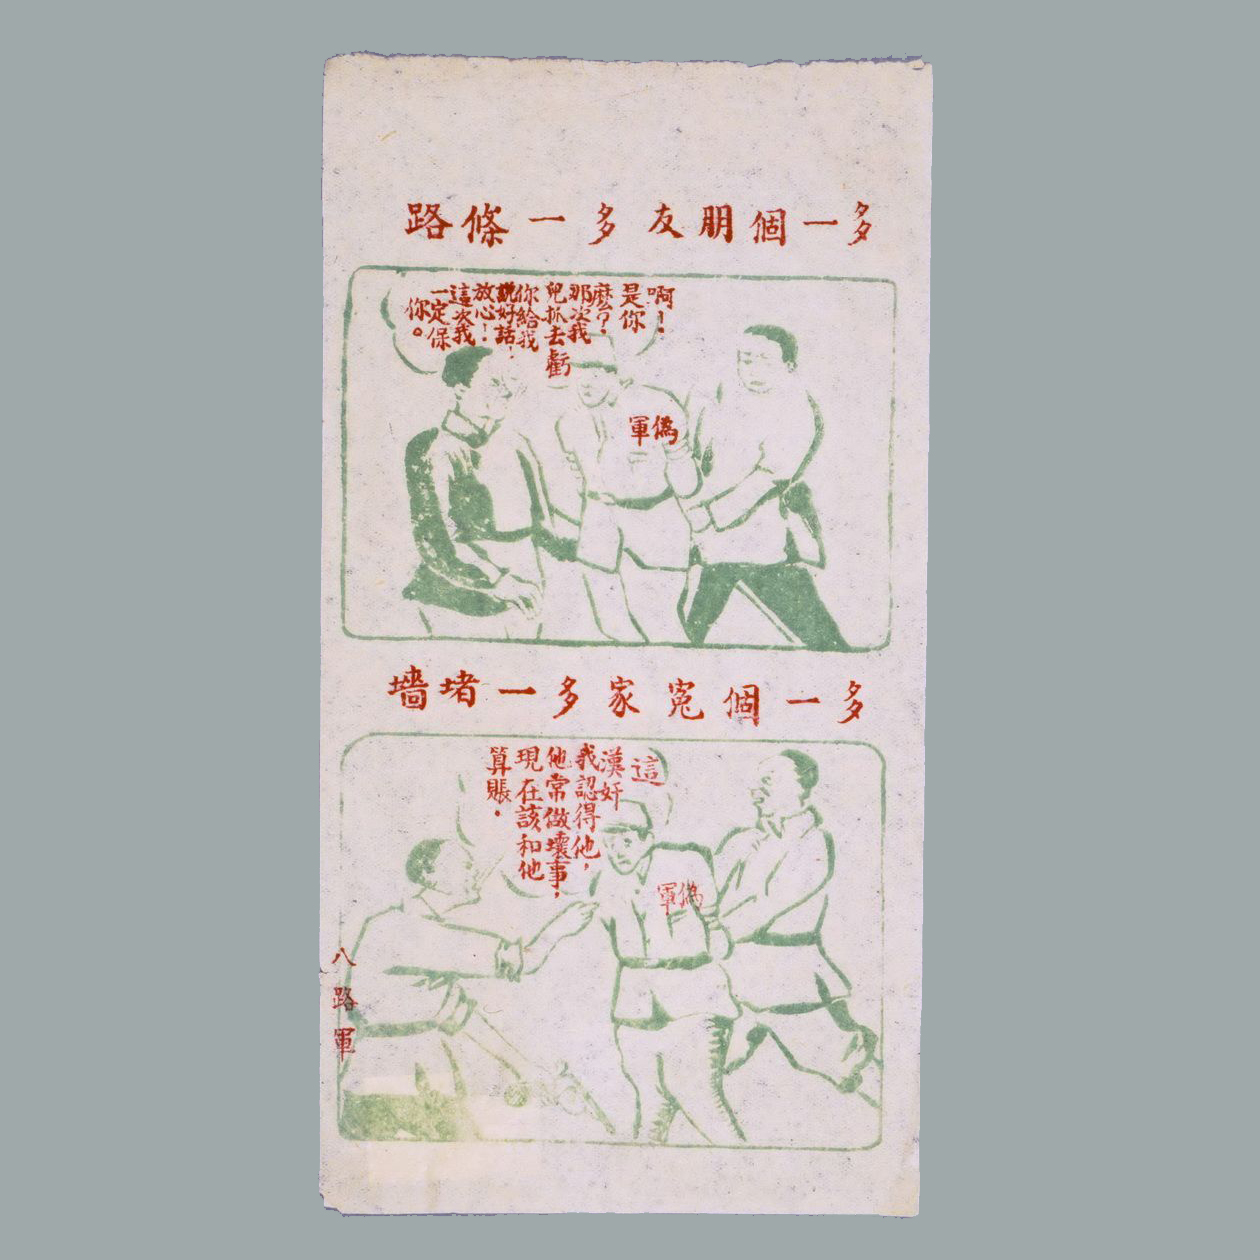 多一個朋友多一條路
啊！
是你
麽？
那次我
兒抓去虧
你給我
說好話，
放心！
這次我
一定保
你。
偽軍
多一個冤家多一堵墻
這
漢奸
我認得他，
他常做壞事，
現在該和他
算賬．
偽軍
八路軍